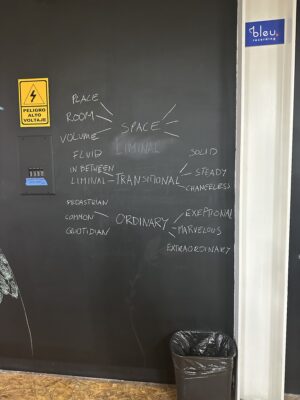 bleu.
recording
PELIGRO
ALTO
VOLTAJE
PLACE
ROOM
VOLUME
SPACE
LIMINAL
FLUID
IN BETWEEN
LIMINAL
TRANSITIONAL
SOLID
STEADY
CHANGELESS
PEDASTRIAN
COMMON
QUOTIDIAN
ORDINARY
EXEPTIONAL
MARVELOUS
EXTRAORDINARY